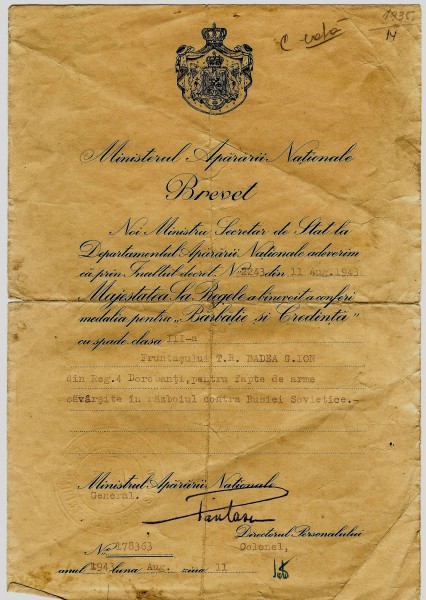 1935
14
Ministerul Apărării Naționale
Brevet
Noi Ministru Secretar de Stat la
Departamentul Apărării Naționale adeverim
că prin Înaltul decret. No 2243 din 11 Aug. 1943
Majestatea Sa Regele a binevoit a conferi
medalia pentru „Bărbăție și Credință”
cu spade clasa III-a
Fruntașului T.R. BADEA G.ION
din Reg.4 Dorobanți,pentru fapte de arme
săvârșite în războiul contra Rusiei Sovietice.-
Ministrul Apărării Naționale
General.
Directorul Personalului
Colonel,
No 178363
anul 1943 luna Aug. ziua 11